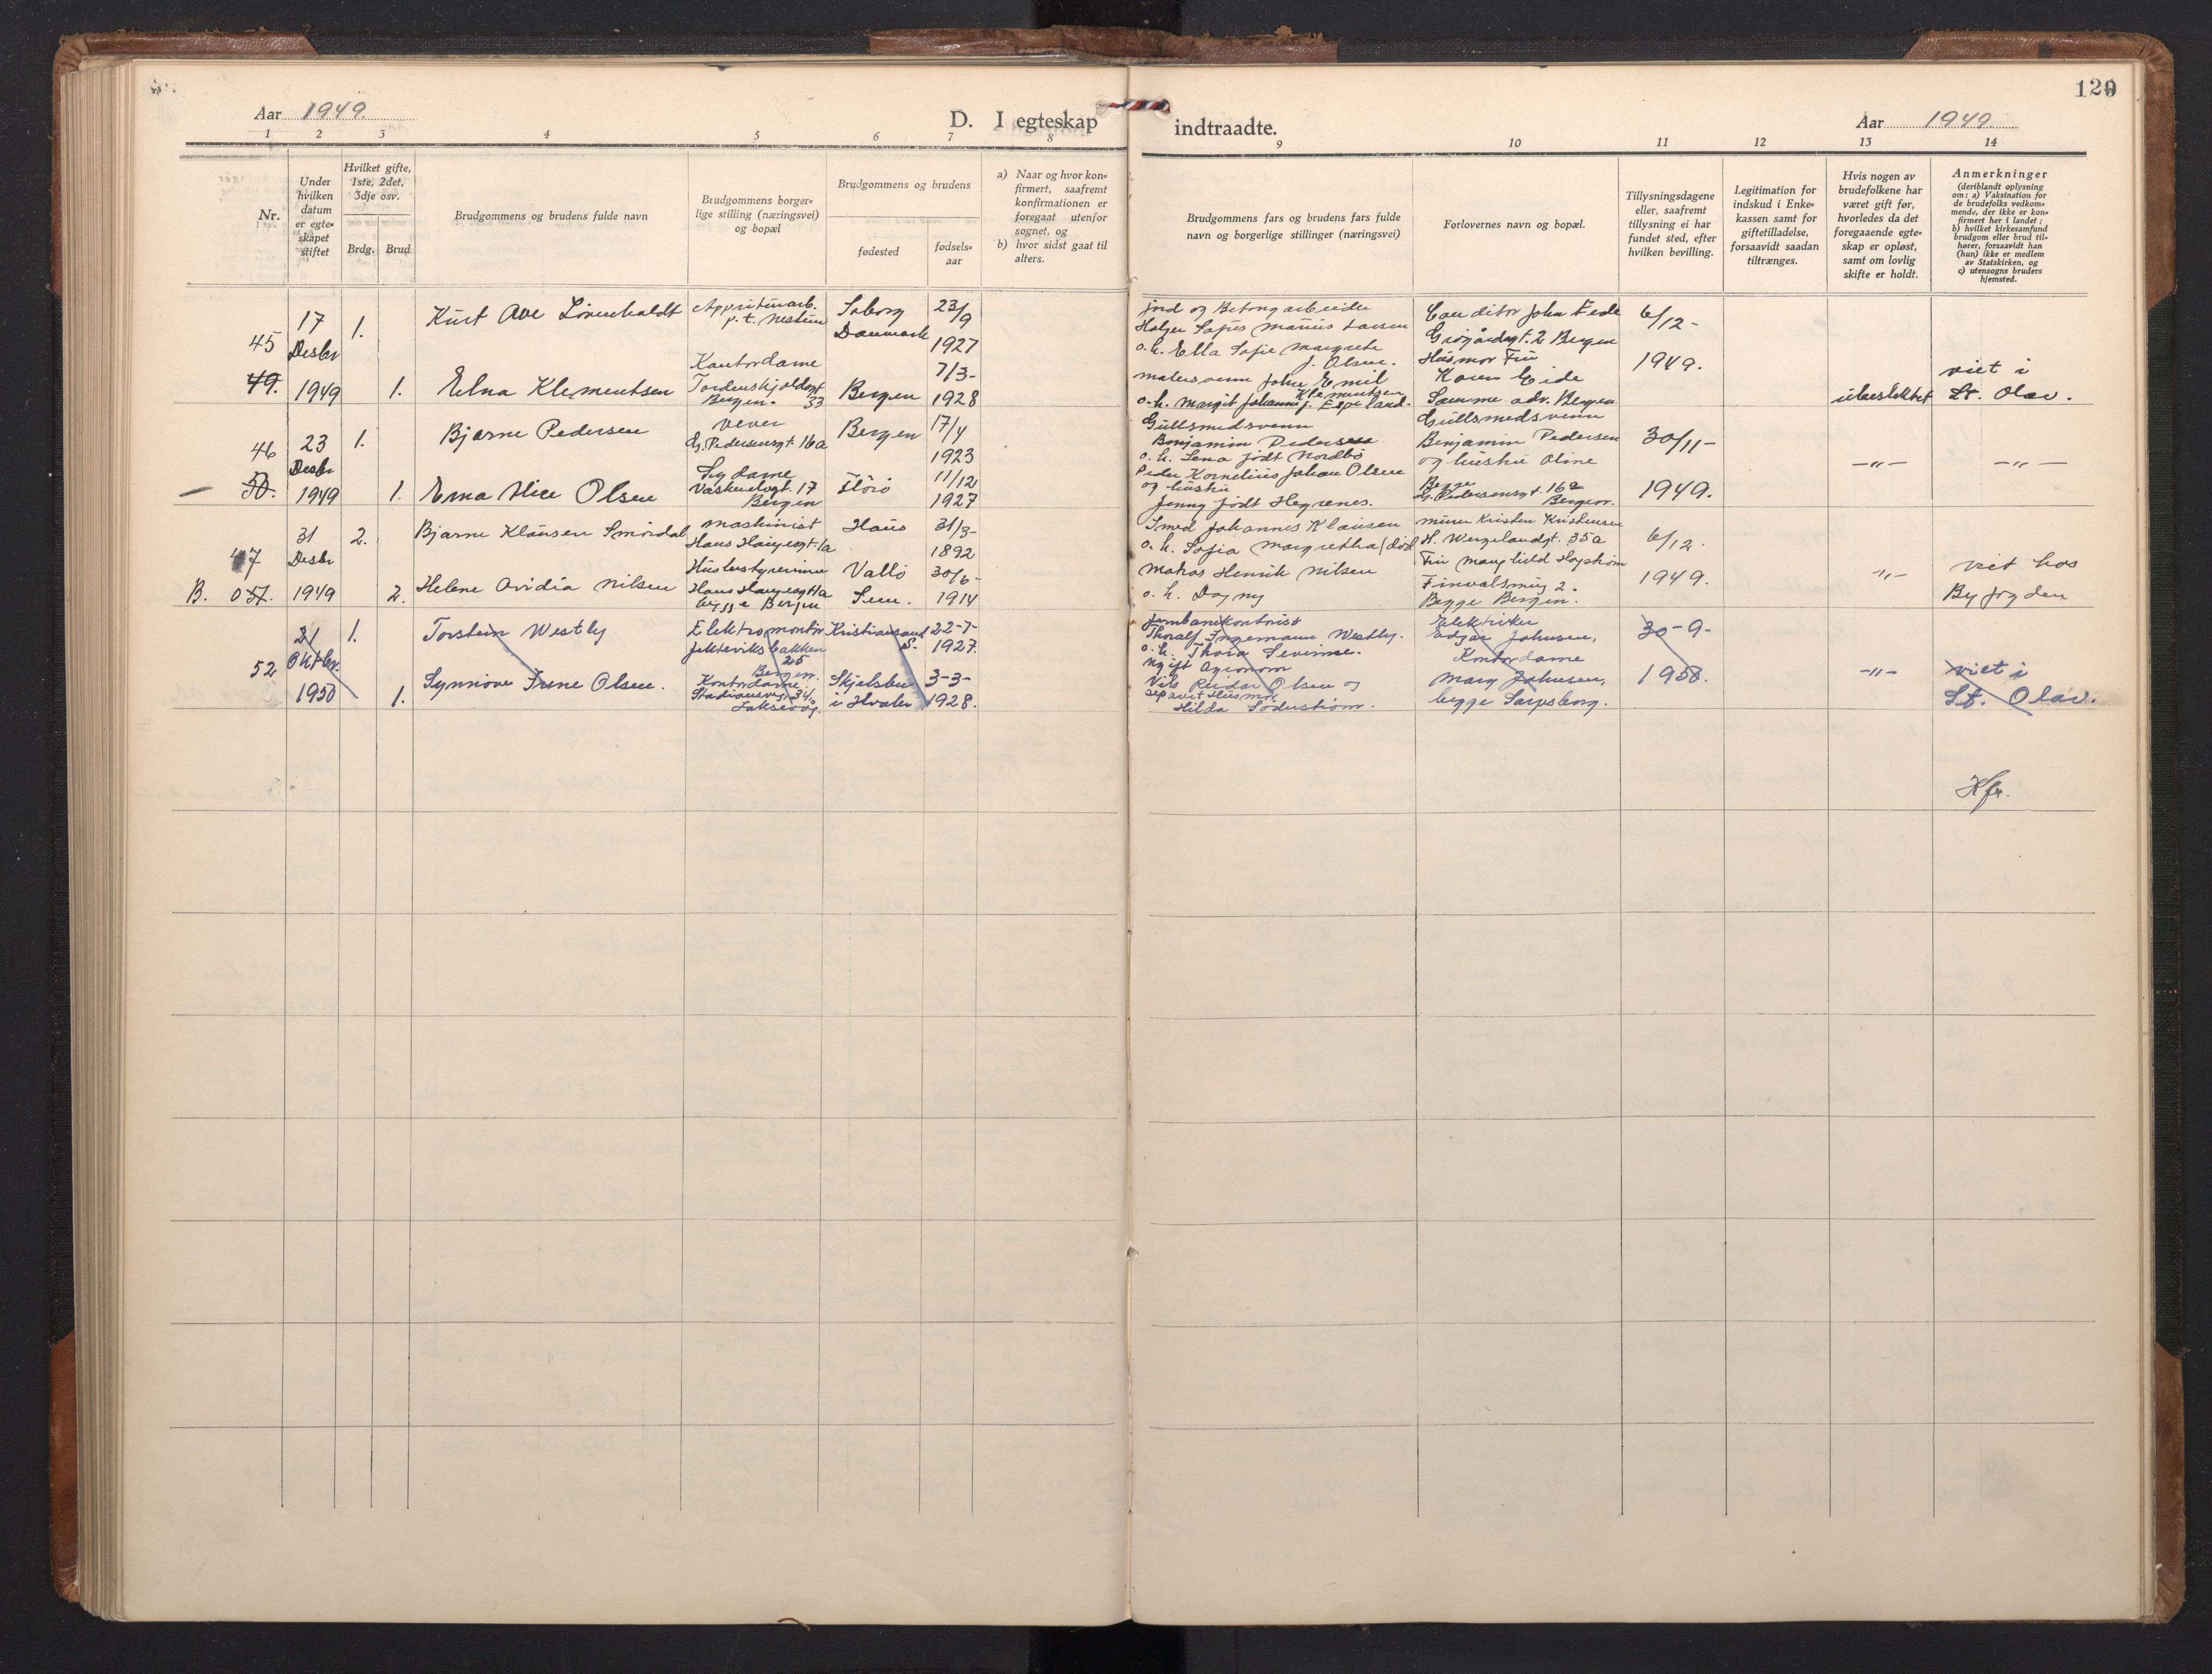 Aar 1949.
D. I egteskap
indtraadte.
Aar 1949.
129
1 2 3 4 5 6 7 8 9 10 11 12 13 14
Nr.
Under hvilken datum er egte-skapet stiftet
Hvilket gifte, 1ste, 2det, 3dje osv.
Brdg. Brud
Brudgommens og brudens fulde navn
Brudgommens borger-lige stilling (næringsvei) og bopæl
Brudgommens og brudens
fødested
fødsels-aar
a) Naar og hvor kon-firmert, saafremt konfirmationen er foregaat utenfor sognet, og
b) hvor sidst gaat til alters.
Brudgommens fars og brudens fars fulde navn og borgerlige stillinger (næringsvei)
Forlovernes navn og bopæl.
Tillysningsdagene eller, saafremt tillysning ei har fundet sted, efter hvilken bevilling.
Legitimation for indskud i Enke-kassen samt for giftetilladelse, forsaavidt saadan tiltrænges.
Hvis nogen av brudefolkene har været gift før, hvorledes da det foregaaende egte-skap er opløst, samt om lovlig skifte er holdt.
Anmerkninger
(deriblandt oplysning om: a) Vaksination for de brudefolks vedkom-mende, der ikke er kon-firmert her i landet; b) hvilket kirkesamfund brudgom eller brud til-hører, forsaavidt han (hun) ikke er medlem av Statskirken, og c) utensogns bruders hjemsted.
45
49.
17
Desbr
1949
1.
Kurt Ove Lövenholdt
p.t. Nestun
Soborg
Danmark
23/9
1927
1.
Elna Klementsen
Kontordame
Tordenskjoldsgt
Bergen. 33
Bergen
7/3-
1928
Jord og Betongarbeider
Holger Sofus Marius Larsen
o. h. Ella Sofie Margrete
J. Olsen.
Malersvenn John Emil
Klementsen
o. h. Margit Johanne f. Espeland.
Conditor John Eide
2 Bergen
Husmor Fru
Karen Eide
Samme adr. Bergen
6/12-
1949.
ubeslektet
viet i
St. Olav.
46
50.
23
Desbr
1949
1.
Bjarne Pedersen
Vever
G. Pedersensgt. 16a
Bergen
17/4
1923
1.
Erna Alice Olsen
Sydame
Vaskerelvgt. 17
Bergen
Florö
11/12
1927
Gullsmedsvenn
Benjamin Pedersen
o. h. Lena födt Nordbö
Peder Kornelius Johan Olsen
og hustru
Jenny födt Hegrenes.
Gullsmedsvenn
Benjamin Pedersen
og hustru Oline
Begge
G. Pedersensgt. 16a
Bergen.
30/11-
1949.
-"-
-"-
47
B. 051.
31
Desbr
1949
2.
Bjarne Klausen Smördal
Maskinist
Hans Haugesgt. 1a
Haus
31/3-
1892
2.
Helene Ovidia Nilsen
Husbestyrerinne
Hans Haugesgt 1a
begge Bergen
Vallö
Sem.
30/6-
1914
Smed Johannes Klausen
o. h. Sofia Margretha (död
Matros Henrik Nilsen
o. h. Dagny
Murer Kristen Kristensen
H. Wergelandgt. 35a
Fru Maughild Hopstrom
Finvalsmug 2.
Begge Bergen.
6/12.
1949.
-"-
viet hos
Byfogden
52
21
Oktbr.
1950
1.
Torstein Westly
Elektromontör
Jekteviksbakken
25
Bergen.
Kristiansand
S.
22-7-
1927.
1.
Synnöve Irene Olsen.
Kontordame
Stadionsveg. 34
Laksevåg.
Skjelsbu
i Hvaler
3-3-
1928.
Jernbanekontorist
Thoralf Ingemann Westly.
o. h. Thora Severine.
Ugift Agronom
Nils Reidar Olsen og
separert Husmor
Hilda Söderström.
Elektriker
Edgar Johnsen,
Kontordame
Mary Johnsen,
begge Sarpsborg.
30-9-
1950.
-"-
viet i
St. Olav.
Kfr.